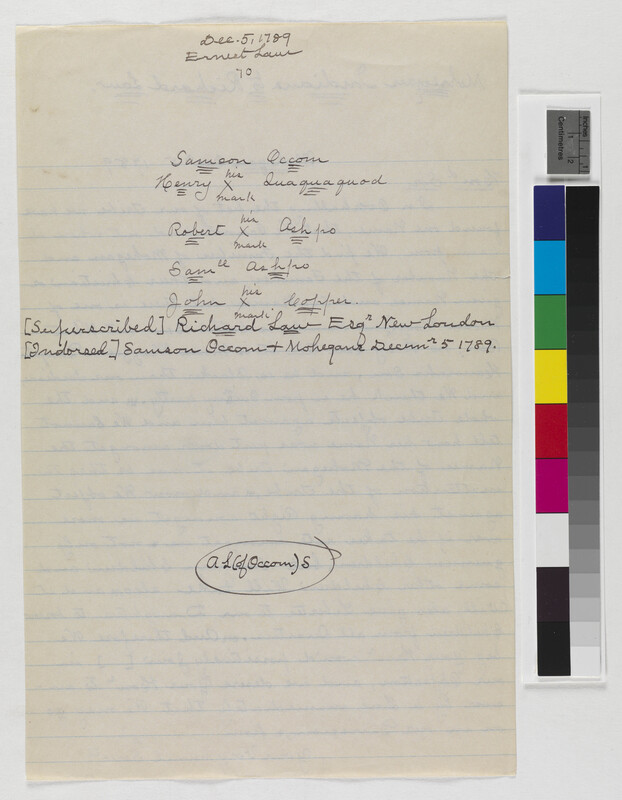 Dec. 5, 1789
Ernest Law
70
Samson Occom
Henry his X mark Quaquaquod
Robert his X mark Ashpo
Samll Ashpo
John his X mark Copper.
[Superscribed] Richard Law Esqr New London
[Indorsed] Samson Occom + Mohegans Decemr 5 1789.
A L (of Occom) S
Centimetres
Inches
1
2
1